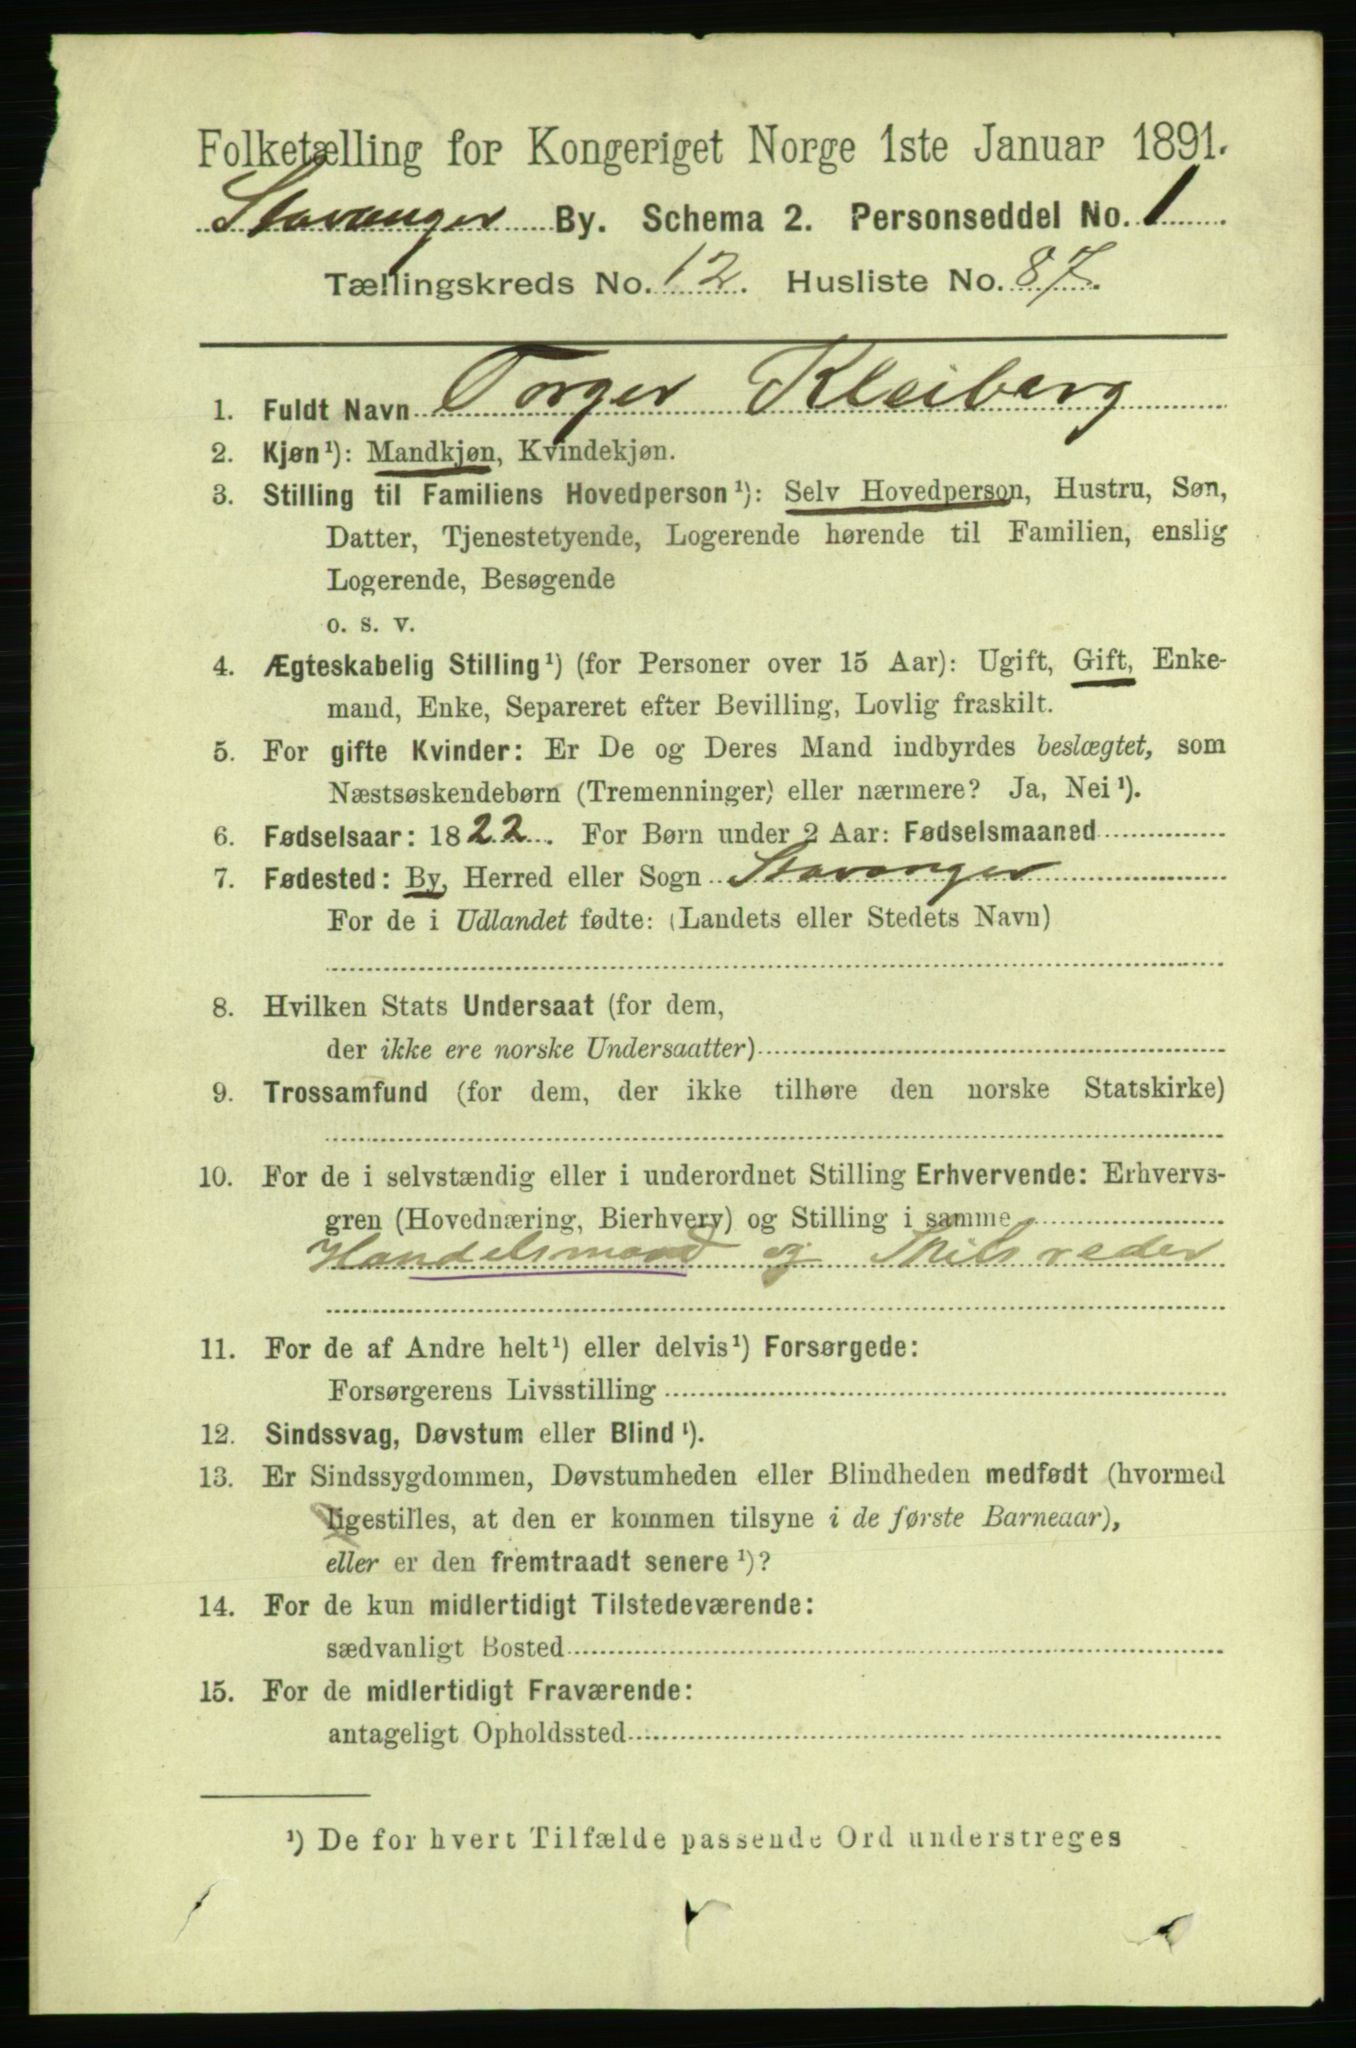 Folketælling for Kongeriget Norge 1ste Januar 1891.
Stavanger By. Schema 2. Personseddel No. 1
Tællingskreds No. 12. Husliste No. 87.
1. Fuldt Navn Torger Kleiberg
2. Kjøn¹): Mandkjøn, Kvindekjøn.
3. Stilling til Familiens Hovedperson¹): Selv Hovedperson, Hustru, Søn,
Datter, Tjenestetyende, Logerende hørende til Familien, enslig
Logerende, Besøgende
o. s. v.
4. Ægteskabelig Stilling¹) (for Personer over 15 Aar): Ugift, Gift, Enke-
mand, Enke, Separeret efter Bevilling, Lovlig fraskilt.
5. For gifte Kvinder: Er De og Deres Mand indbyrdes beslægtet, som
Næstsøskendebørn (Tremenninger) eller nærmere? Ja, Nei¹).
6. Fødselsaar: 1822. For Børn under 2 Aar: Fødselsmaaned
7. Fødested: By, Herred eller Sogn Stavanger
For de i Udlandet fødte: (Landets eller Stedets Navn)
8. Hvilken Stats Undersaat (for dem,
der ikke ere norske Undersaatter)
9. Trossamfund (for dem, der ikke tilhøre den norske Statskirke)
10. For de i selvstændig eller i underordnet Stilling Erhvervende: Erhvervs-
gren (Hovednæring, Bierhverv) og Stilling i samme
Handelsmand og Skibsreder
11. For de af Andre helt¹) eller delvis¹) Forsørgede:
Forsørgerens Livsstilling
12. Sindssvag, Døvstum eller Blind¹).
13. Er Sindssygdommen, Døvstumheden eller Blindheden medfødt (hvormed
ligestilles, at den er kommen tilsyne i de første Barneaar),
eller er den fremtraadt senere¹)?
14. For de kun midlertidigt Tilstedeværende:
sædvanligt Bosted
15. For de midlertidigt Fraværende:
antageligt Opholdssted
¹) De for hvert Tilfælde passende Ord understreges